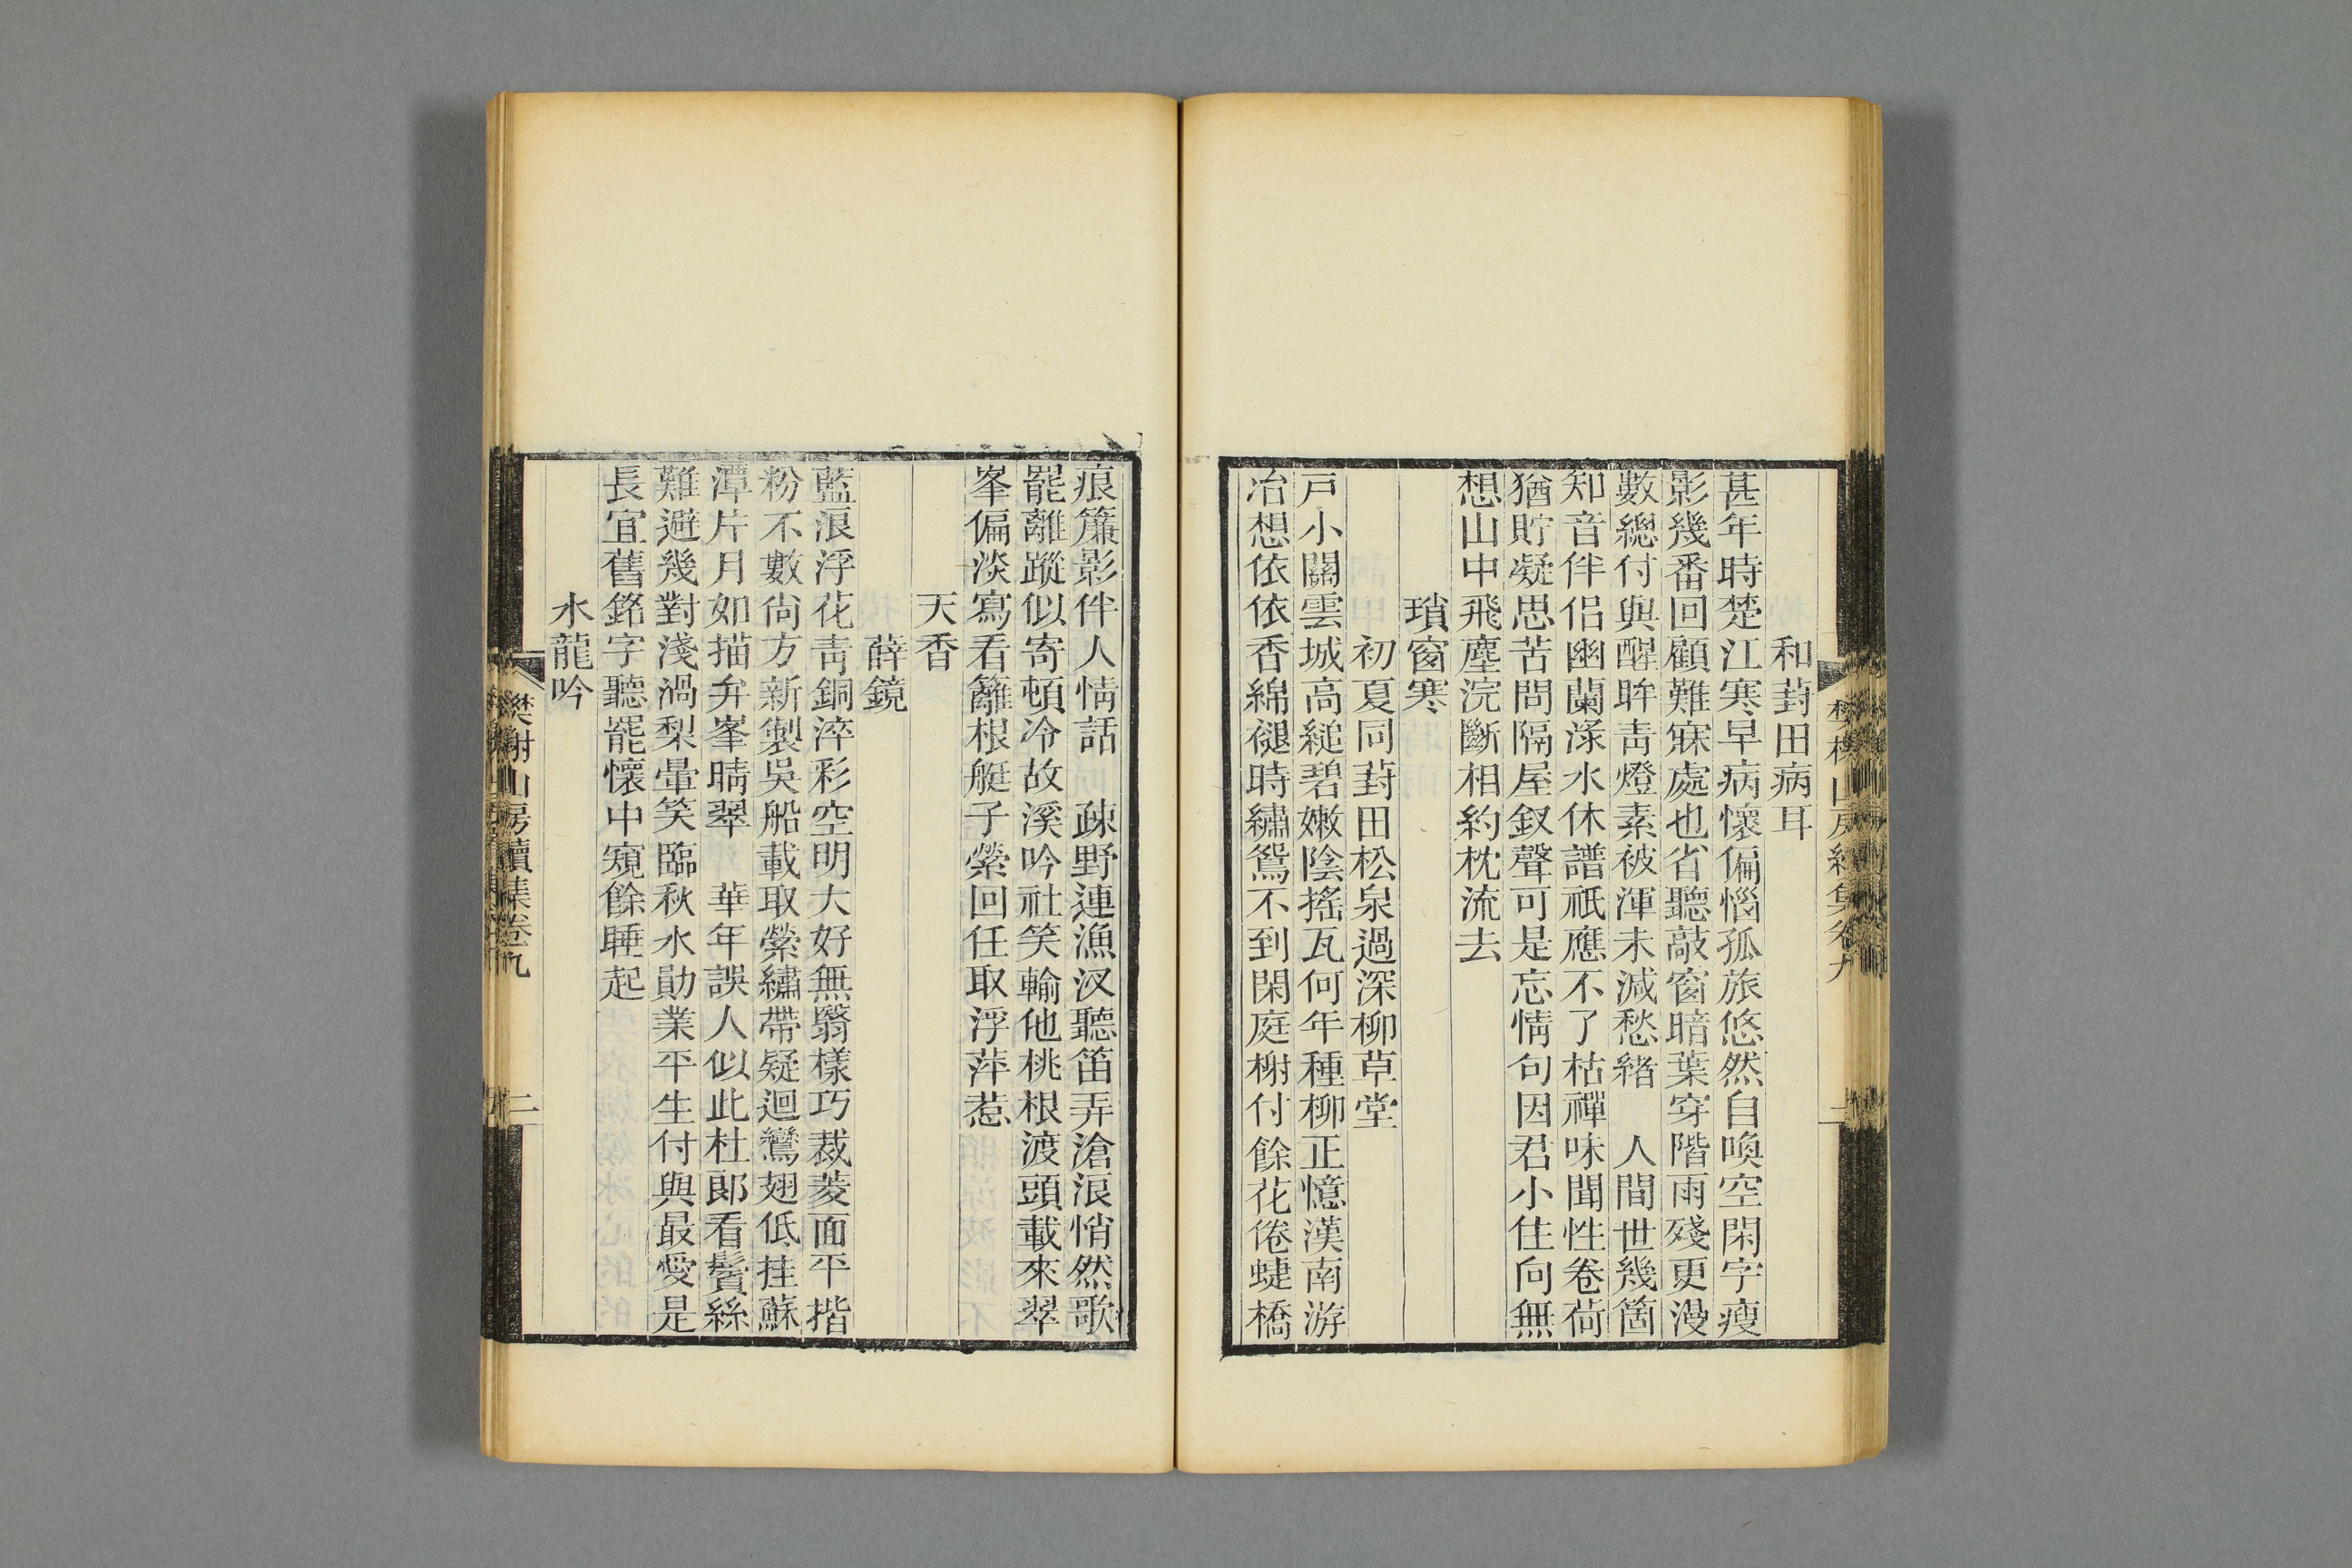 和葑田病耳
甚年時楚江寒早病懷偏惱孤旅悠然自喚空閑宇瘦
影幾番回顧難寐處也省聽敲窗暗葉穿階雨殘更漫
數總付與醒眸靑燈素被渾未減愁緖　人間世幾箇
知音伴侶幽蘭淥水休譜祇應不了枯禪味聞性卷荷
猶貯凝思苦問隔屋釵聲可是忘情句因君小住向無
想山中飛塵浣斷相約枕流去
瑣窗寒
初夏同葑田松泉過深柳草堂
戸小關雲城高縋碧嫩陰搖瓦何年種柳正憶漢南游
冶想依依香綿褪時繡鴛不到閑庭榭付餘花倦蜨橋
痕簾影伴人情話　疎野連漁汊聽笛弄滄浪悄然歌
罷離蹤似寄頓冷故溪吟社笑輸他桃根渡頭載來翠
峯偏淡寫看籬根艇子縈回任取浮萍惹
天香
薛鏡
藍浪浮花靑銅淬彩空明大好無翳樣巧裁菱面平揩
粉不數尙方新製吳船載取縈繡帶疑迴鸞翅低挂蘇
潭片月如描弁峯晴翠　華年誤人似此杜郞看鬢絲
難避幾對淺渦梨暈笑臨秋水勛業平生付與最愛是
長宜舊銘字聽罷懷中窺餘睡起
水龍吟
樊榭山房續集卷九
二